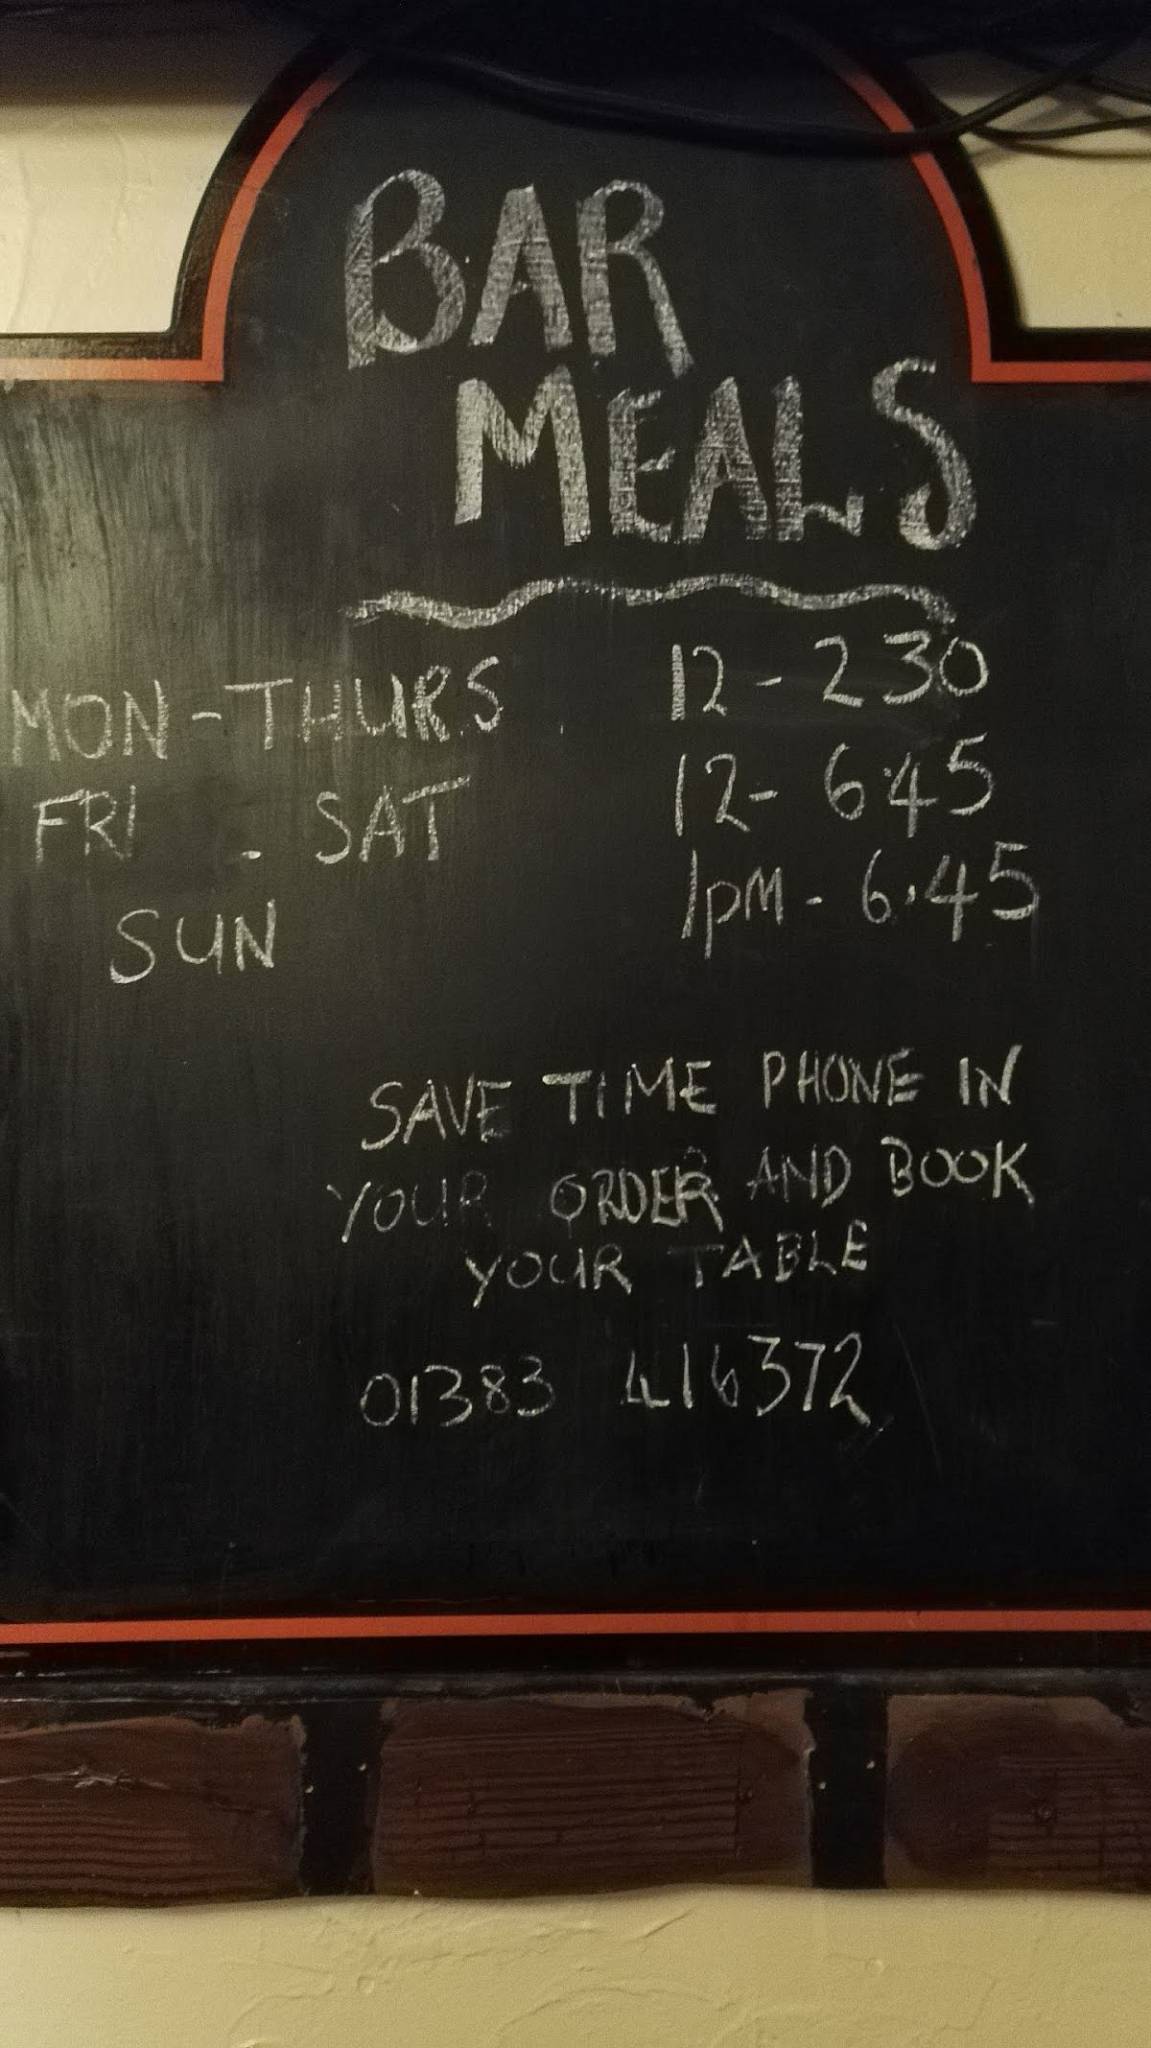 BAR
MEALS
MON-THURS 12-230
FRI - SAT 12- 6.45
SUN 1PM - 6.45
SAVE TIME PHONE IN
YOUR ORDER AND BOOK
YOUR TABLE
01383 416372